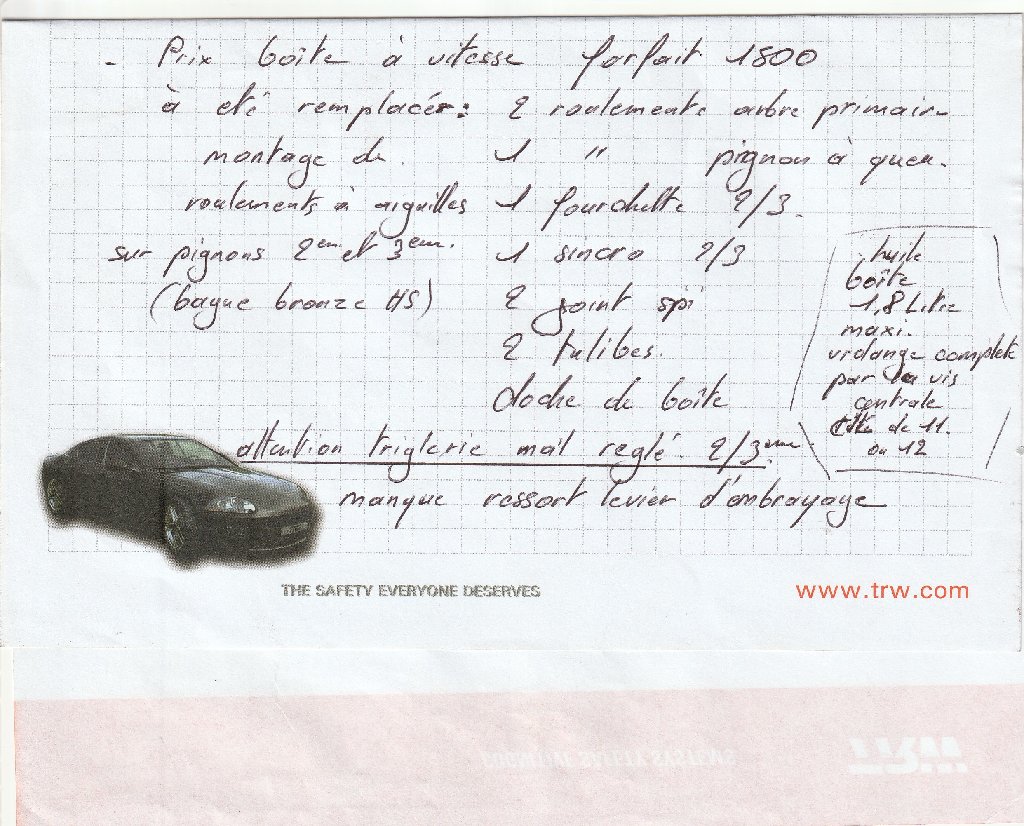 - Prix boîte à vitesse forfait 1800
à eté remplacér: 2 roulements arbre primair
montage de 1 " pignon à queu.
roulements à aiguilles 1 fourchette 2/3.
sur pignons 2em et 3em. 1 sincro 2/3
(bague bronze HS) 2 joint spi
2 tulibes.
cloche de boîte
huile
boîte
1,8 Litre
maxi.
vidange complete
par la vis
centrale
de 11.
ou 12
attention triglerie mal reglé. 2/3eme
manque ressort levier d'embrayage
THE SAFETY EVERYONE DESERVES
www.trw.com
TRW